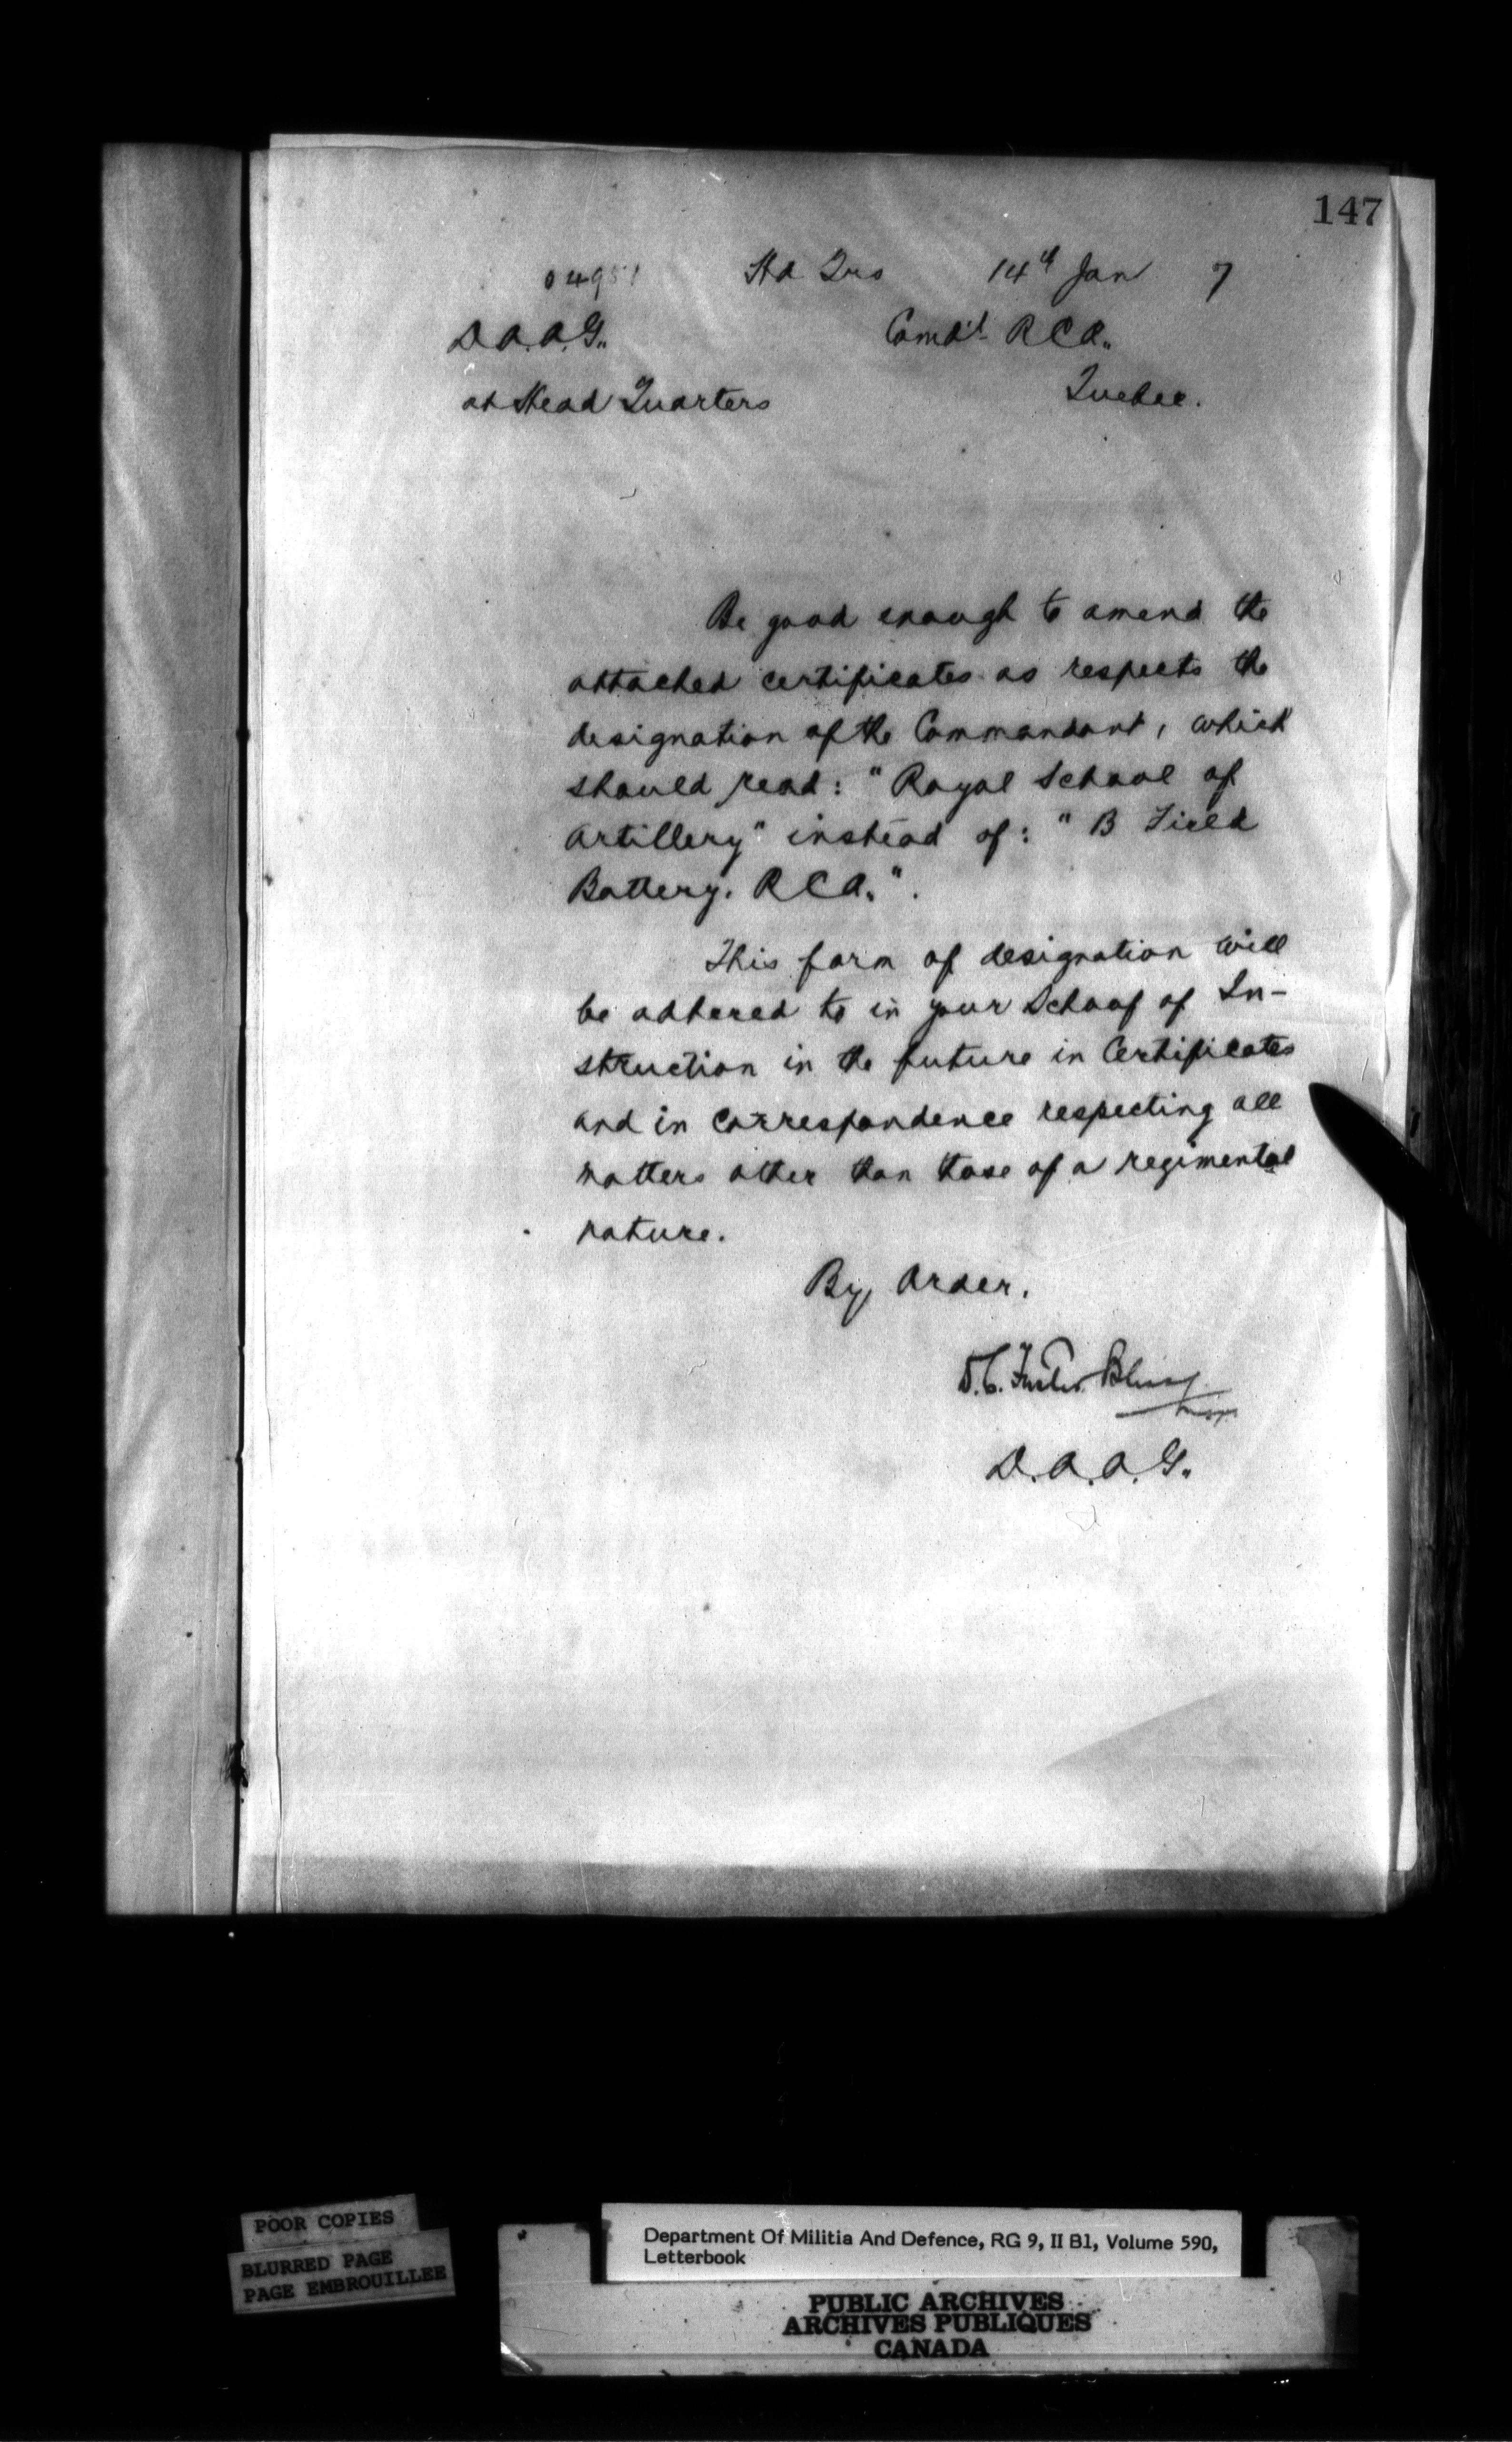 147
Hd Qrs 14th Jan 7
D.A.A.G. Comdt R.C.A.
at Head Quarters Quebec.
Be good enough to amend the
attached certificates as respects the
designation of the Commandant, which
should read: "Royal School of
Artillery" instead of: "B Field
Battery. R.C.A.".
This form of designation will
be adhered to in your School of In-
struction in the future in Certificates
and in correspondence respecting all
matters other than those of a regimental
nature.
By Order.
D.A.A.G.
POOR COPIES
BLURRED PAGE
PAGE EMBROUILLEE
Department Of Militia And Defence, RG 9, II B1, Volume 590,
Letterbook
PUBLIC ARCHIVES
ARCHIVES PUBLIQUES
CANADA